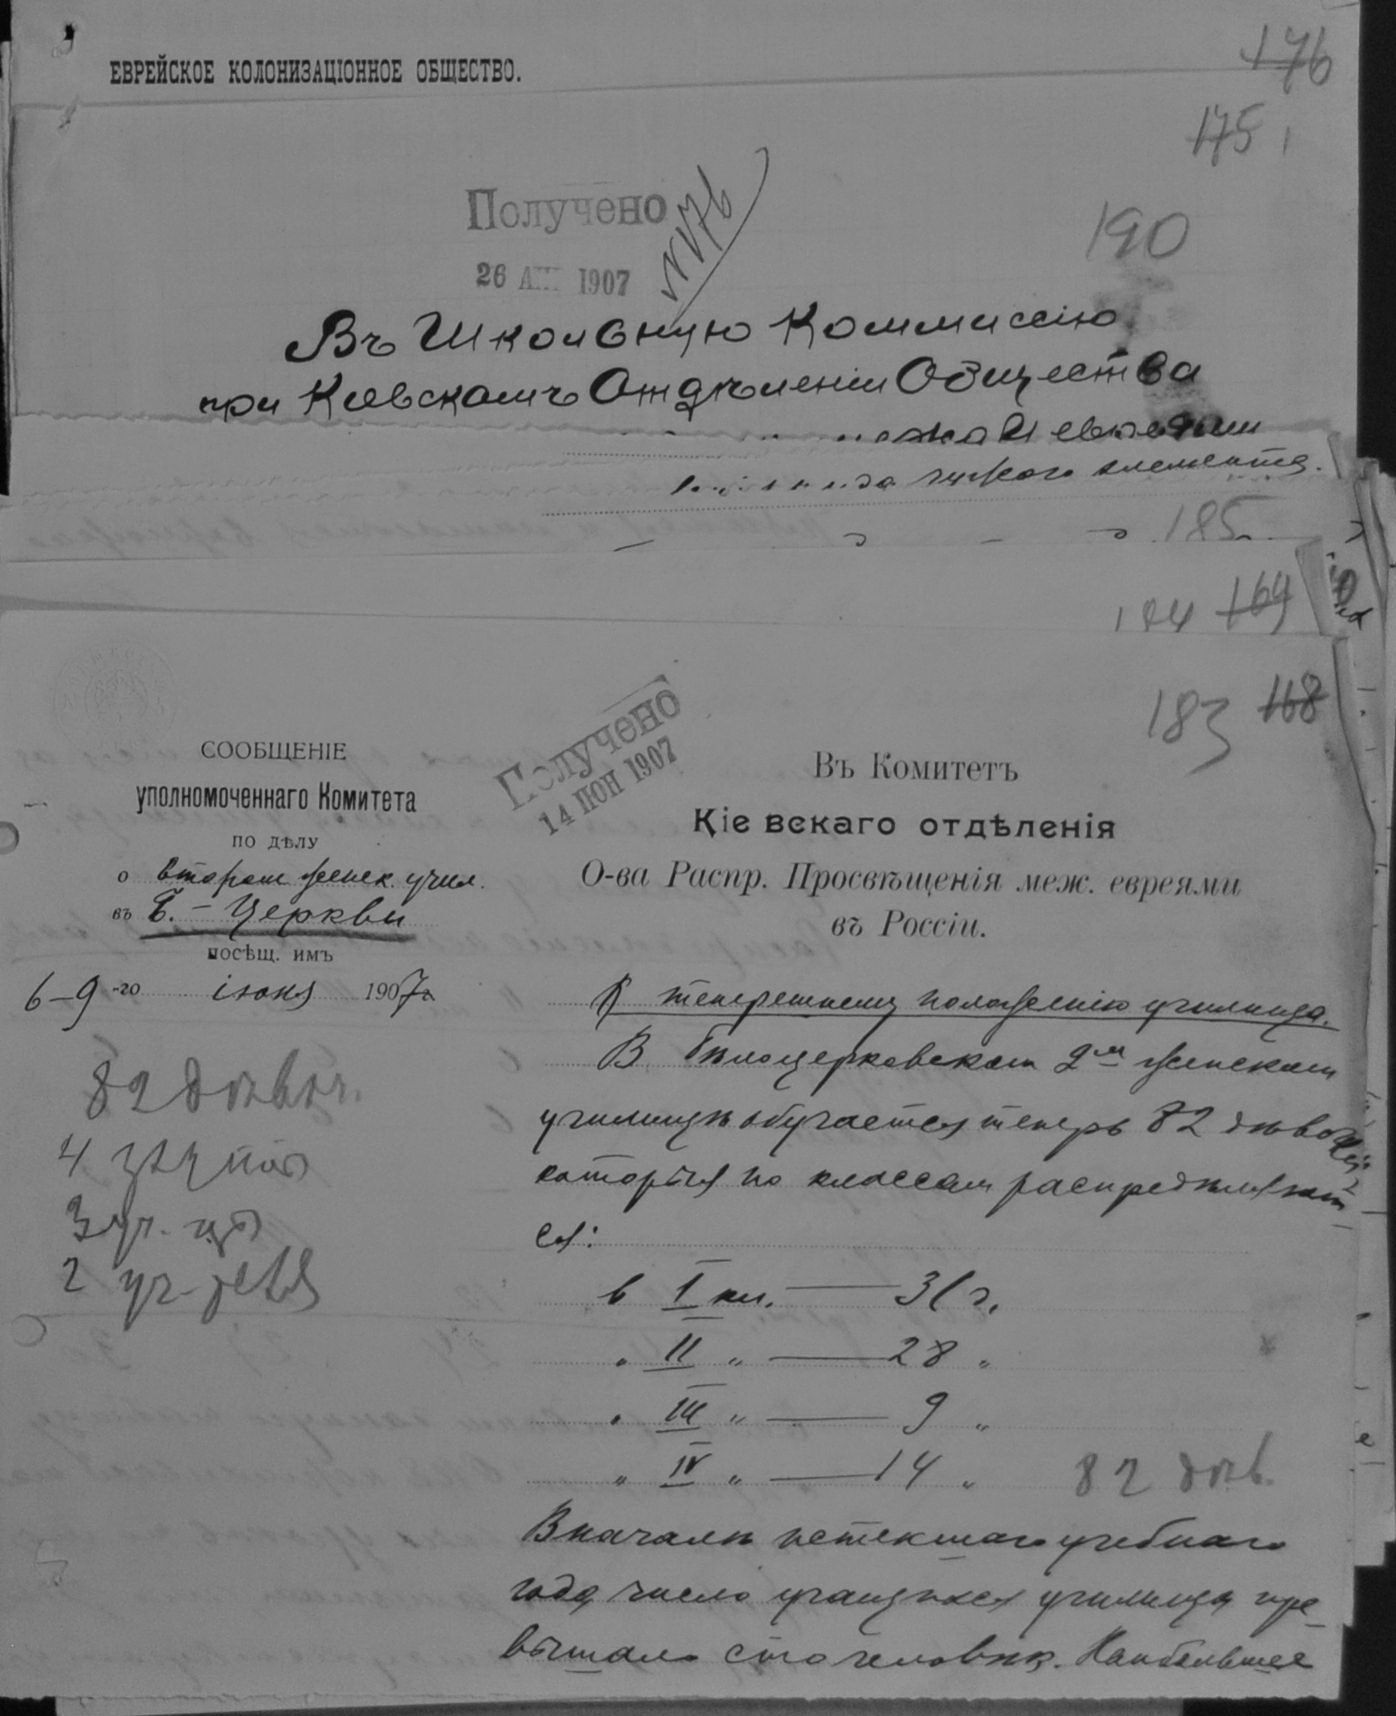 ЕВРЕЙСКОЕ КОЛОНИЗАЦІОННОЕ ОБЩЕСТВО.
176
175
190
Получено
26 1907
№176
Въ Школьную Коммиссію
при Кіевскомъ Отдѣленіи Общества
евреями
элемента.
185
184 169
183 168
СООБЩЕНІЕ
уполномоченнаго Комитета
по дѣлу
о втором женск. учил.
въ Б.-Церкви
посѣщ. имъ
6-9-го іюня 1907
82 дѣвоч.
Получено
14 ІЮН 1907
Въ Комитетъ
Кіевскаго отдѣленія
О-ва Распр. Просвѣщенія меж. евреями
въ Россіи.
К теперешнему положенію училища.
В Бѣлоцерковском 2м женском
училищѣ обучается теперь 82 дѣвочки,
которыя по классам распредѣляют-
ся:
в I кл. — 31 г.
„ II „ — 28 „
„ III „ — 9 „
„ IV „ — 14 „ 82 дѣв.
Вначалѣ истекшаго учебнаго
года число учащихся училища пре-
вышало сто человѣк. Наибольшее